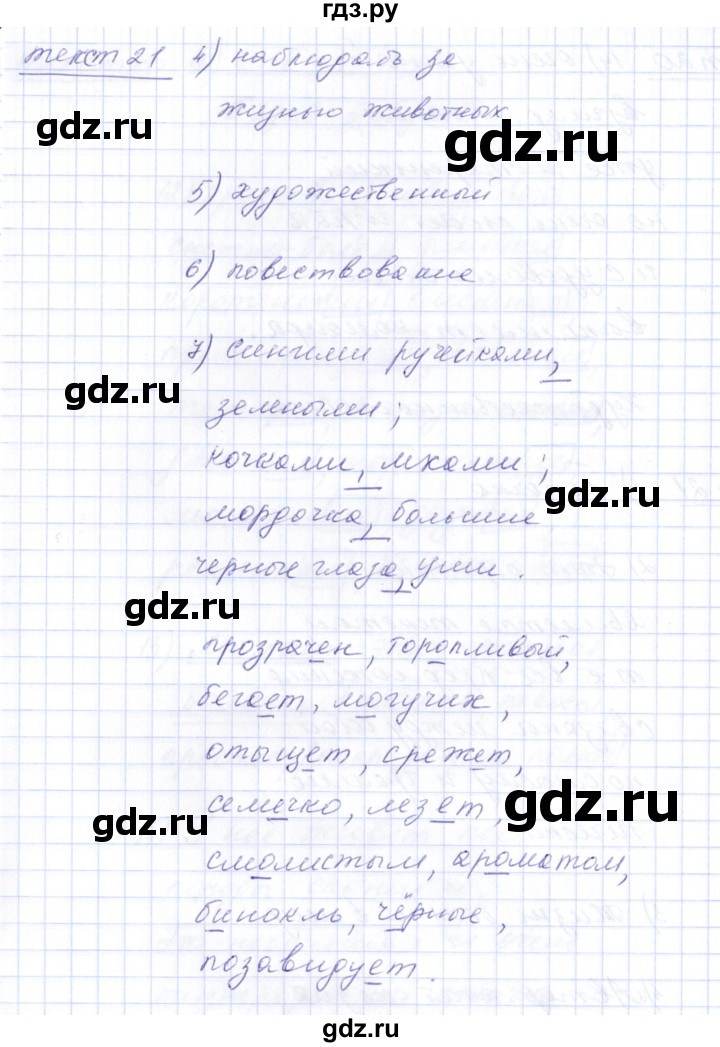 гдз.ру
текст 21 4) наблюдать за
жизнью животных
gdz.ru
gdz.ru
5) художественный
6) повествование
7) синими ручейками,
gdz.ru
зелёными;
кочками, мхами;
gdz.ru
мордочка, большие
черные глаза, уши.
gdz.ru
прозрачен, торопливый,
бегает, могучих,
отыщет, срежет,
семечко, лезет,
gdz.ru
gdz.ru
смолистым, ароматом,
бинокль, чёрные,
позавидует.
gdz.ru